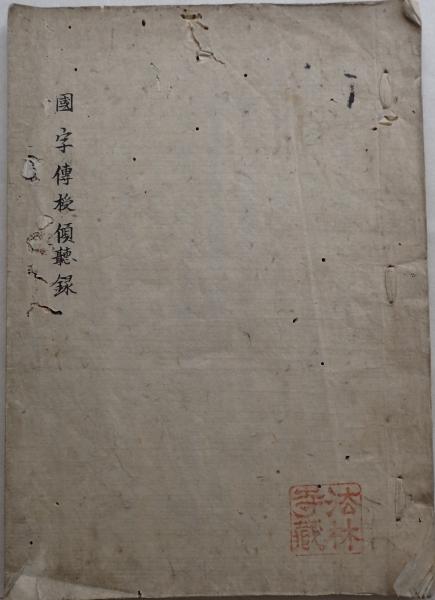 國字傳授傾聽録
法林
寺藏